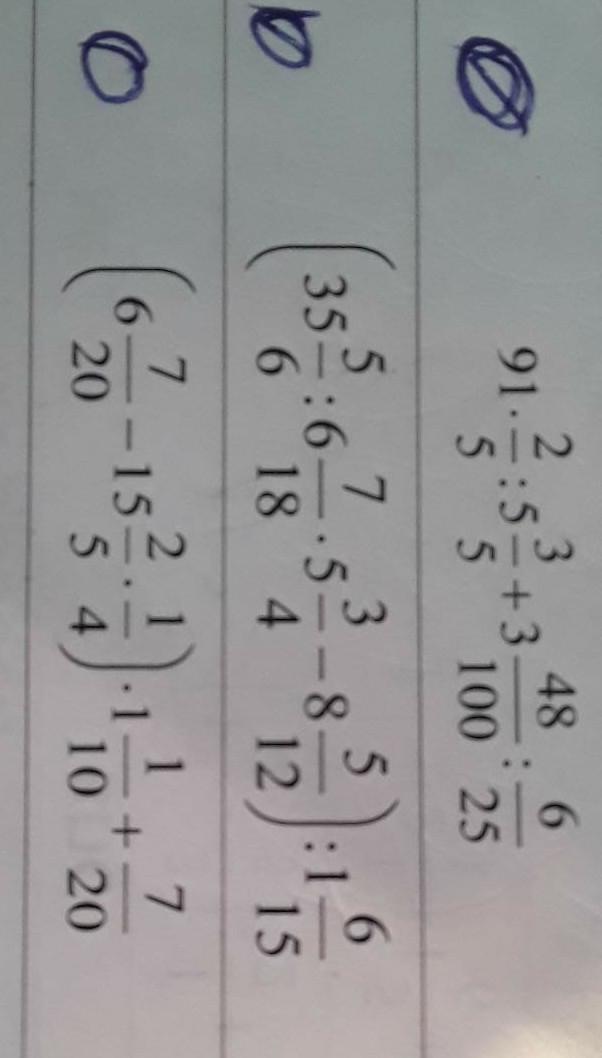 91 · 2/5 : 5 3/5 + 3 48/100 : 6/25
(35 5/6 : 6 7/18 · 5 3/4 − 8 5/12) : 1 6/15
(6 7/20 − 15 2/5 · 1/4) · 1 1/10 + 7/20